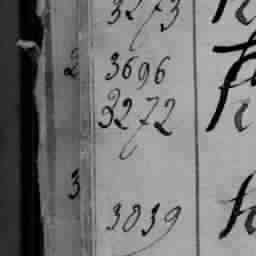 3273
2 3696
3272
3
3039